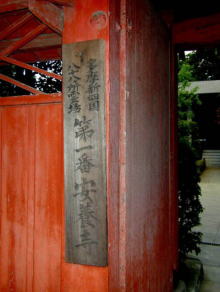 多摩新四国
八十八ヶ所霊場
第一番 安養寺